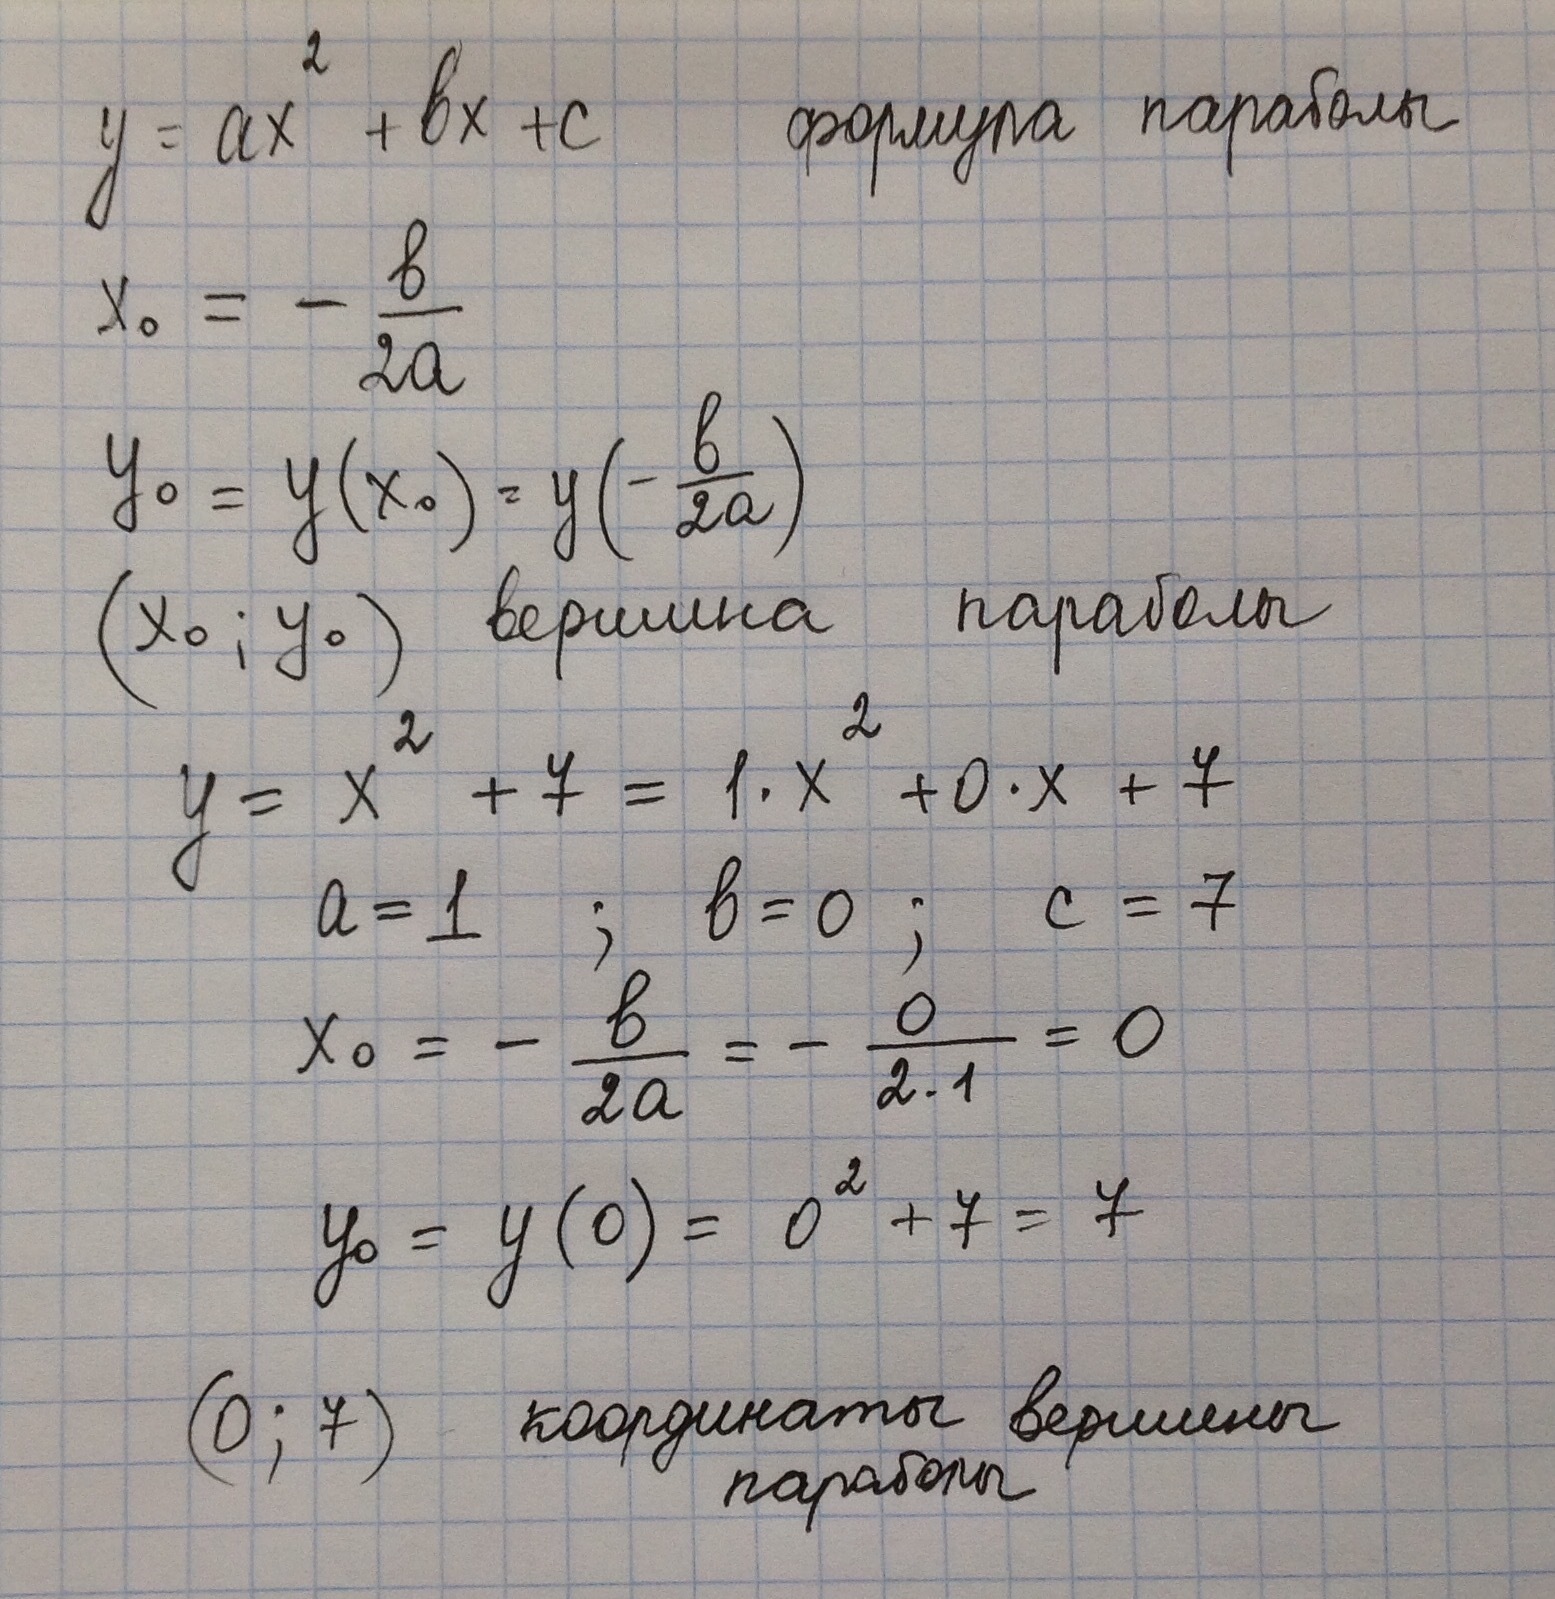 y = ax² + bx + c формула параболы
x₀ = - b/2a
y₀ = y(x₀) = y(- b/2a)
(x₀; y₀) вершина параболы
y = x² + 7 = 1·x² + 0·x + 7
a = 1 ; b = 0 ; c = 7
x₀ = - b/2a = - 0/2·1 = 0
y₀ = y(0) = 0² + 7 = 7
(0; 7) координаты вершины
параболы